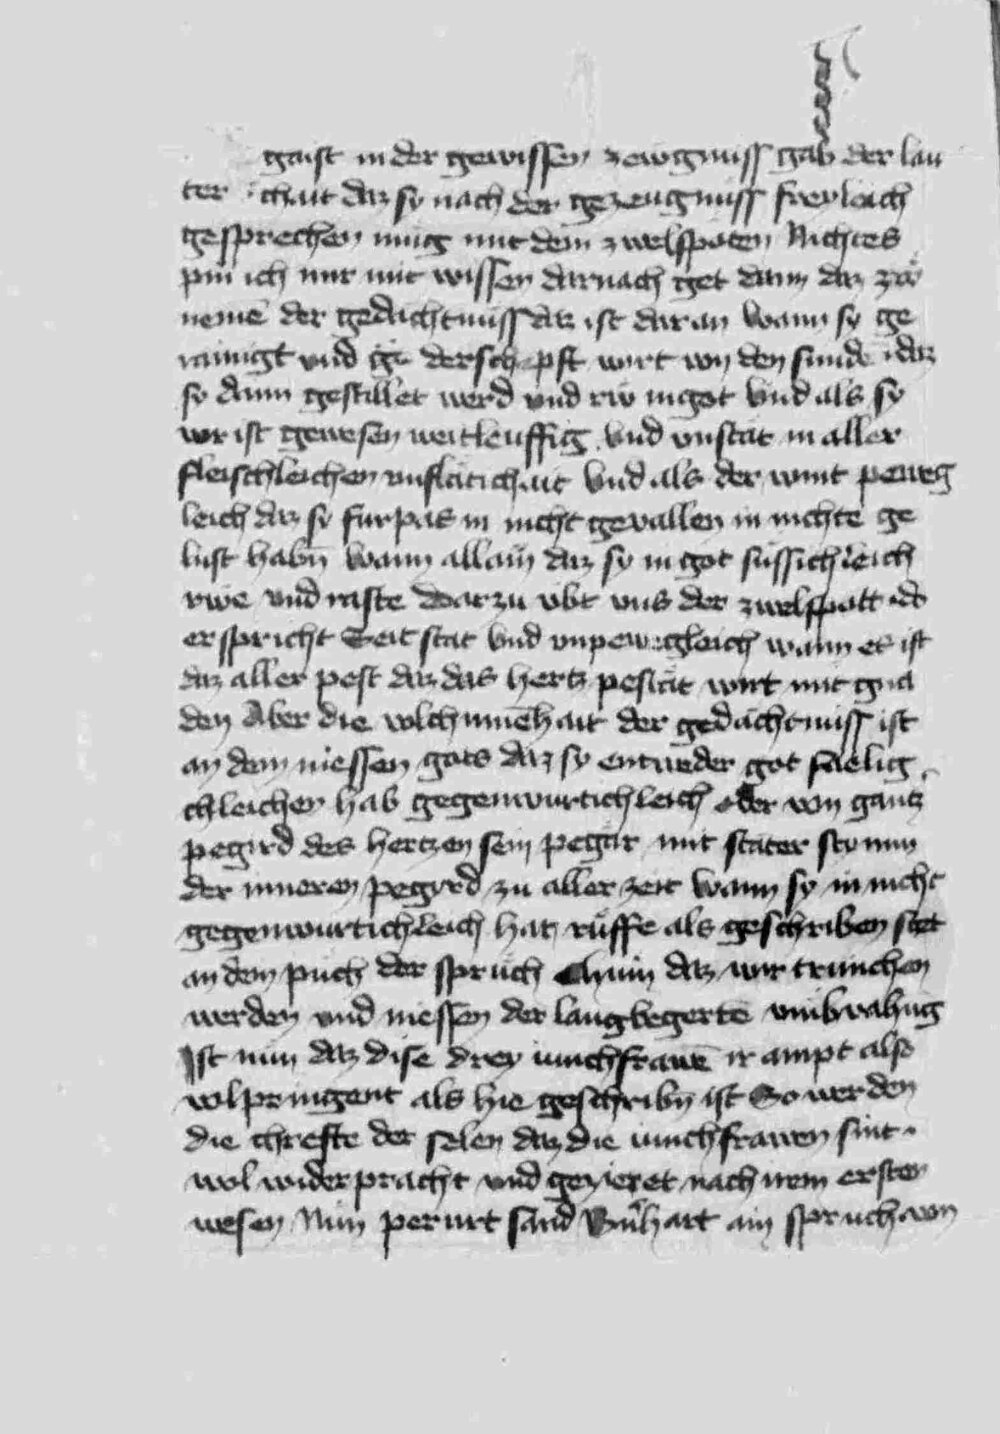 gaist in der gewissen zewgnuss gab der lau
ter chait daz sy nach der gezeugnuss freyleich
gesprechen mug mit dem zwelfpoten Nichtes
pin ich mir mit wissen darnach get dann daz zů
nemē der gedächtnuss daz ist daran wann sy ge
rainigt vnd gar derschepft wirt von den sundē daz
sy dann gestillet werd vnd rw in got Vnd als sy
vor ist gewesen weitleuffig vnd vnstät in aller
fleischleichen vnflätichait Vnd als der wint peweg
leich daz sy furpas in nicht gevallen in nichte ge
lust habn̄ wann allain daz sy in got süssichleich
rwe vnd raste Darzu vbt vns der zwelfpott do
er spricht Seit stät vnd vnpewegleich wann es ist
daz aller pest daz das hertz pestät wirt mit gna
den Aber die volchumēhait der gedächtnuss ist
an dem niessen gots daz sy entweder got sälig
chleichen hab gegenwurtichleich oder von gantz
pegird des hertzen sein pegär mit stäter stymm
der inneren pegyrd zu aller zeit wann sy in nicht
gegenwurtichleich hat rüffe als geschriben stet
an dem puch der spruch Chum daz wir trunchen
werden vnd niessen der langbegertē vmbvahūg
Ist nun daz dise drey iunchfrawē ir ampt also
volpringent als hie geschribn̄ ist So werden
die chrefte der selen daz die iunchfrawen sint
wol widerpracht vnd gezieret nach irem ersten
wesen Nun perurt sand Bern̄hart ain spruch von